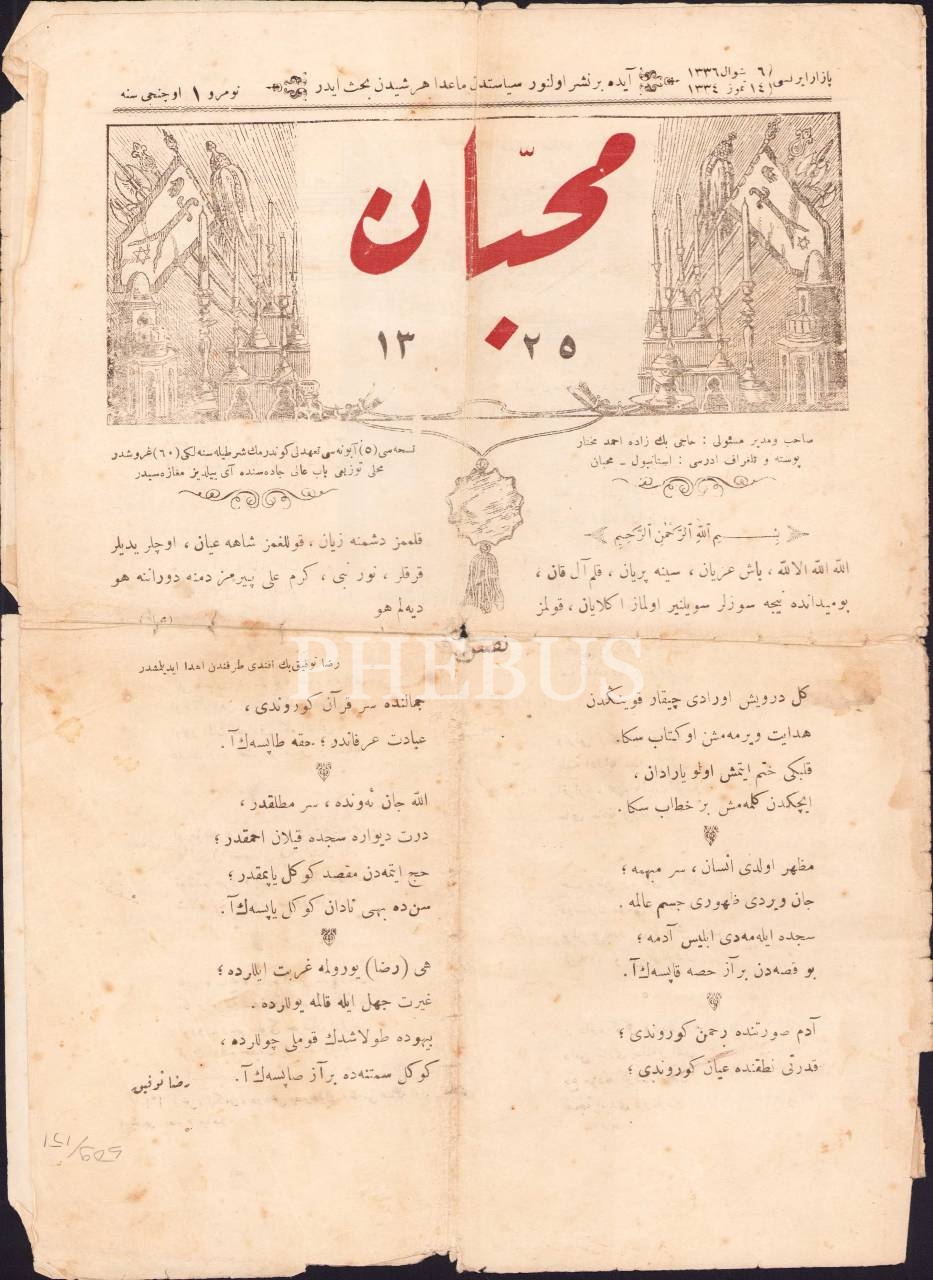 بازار ایرتسی ٦ شوال ١٣٣٦
١٤ تموز ١٣٣٤
آیده بر نشر اولنور سیاستدن ماعدا هر شیدن بحث ایدر
نومرو ١ اوچنجی سنه
محبّان
١٣٢٥
صاحب ومدیر مسئولی : حاجی بك زاده احمد مختار
پوسته و تلغراف ادرسی : استانبول ـ محبان
نسخه سی (٥) آبونه سی تعهدلی کوندرمك شرطیله سنه لکی (٦٠) غروشدر
محلی توزیعی باب عالی جاده سنده آی ییلدیز مغازه سیدر
بِسْمِ ٱللّٰهِ ٱلرَّحْمٰنِ ٱلرَّحِيمِ
الله الله الا الله ، باش عریان ، سینه پریان ، قلم آل قان ،
بو میدانده نیجه سوزلر سویلنیر اولماز اکلایان ، قولمز
قلممز دشمنه زیان ، قوللغمز شاهه عیان ، اوچلر یدیلر
قرقلر ، نور نبی ، کرم علی پیرمز دمنه دوراننه هو
دیه لم هو
نفس
رضا توفیق بك افندی طرفندن اهدا ایدیلمشدر
کل درویش اورادی چیقار قوینکدن
هدایت ویرمه مش او کتاب سکا.
قلبکی ختم ایتمش اولو یارادان ،
ایچکدن کلمه مش بر خطاب سکا.
مظهر اولدی انسان ، سر مبهمه ؛
جان ویردی ظهوری جسم عالمه .
سجده ایله مه دی ابلیس آدمه ؛
بو قصه دن بر آز حصه قاپسه ك آ.
آدم صورتنده رحمن کوروندی ؛
قدرتی نطقنده عیان کوروندی ؛
جمالنده سر قرآن کوروندی ،
عبادت عرفاندر ؛ حقه طاپسه ك آ.
الله جان ئه ونده ، سر مطلقدر ،
درت دیواره سجده قیلان احمقدر ؛
حج ایتمه دن مقصد کوکل یاپمقدر ؛
سن ده بهی نادان کوکل یاپسه ك آ.
هی (رضا) یورولمه غربت ایللرده ؛
غیرت جهل ایله قالمه یوللرده .
بیهوده طولاشدك قوملی چوللرده ،
کوکل سمتنه ده بر آز صاپسه ك آ.
رضا توفیق
PHEBUS
509/151